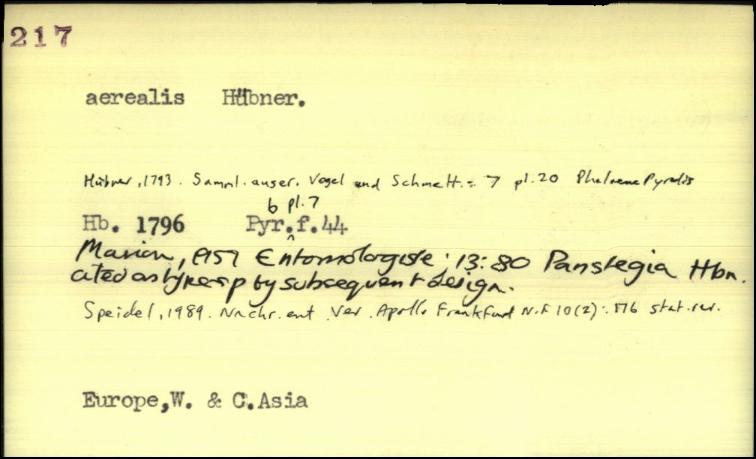 217
aerealis Hübner.
Hübner, 1793. Samml. auser. Vogel und Schmett. = 7 pl.20 Phalaena Pyralis
6 pl.7
Hb. 1796 Pyr.f.44
Marion, 1957 Entomologiste. 13:80 Panstegia Hbn.
cited as type sp by subsequent design.
Speidel, 1989. Nachr. ent. Ver. Apollo Frankfurt N.F 10(2): 176 stat. rev.
Europe, W. & C. Asia